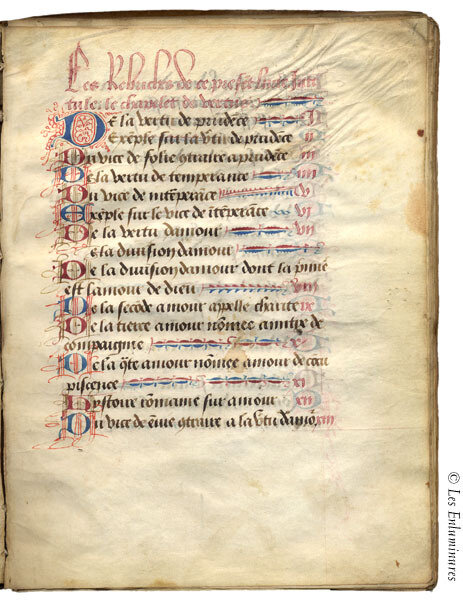 Les Rebriches de ce present livre inti
tule le chapelet de vertus
De la vertu de prudēce II
Exēple sur la v̄tu de prudēce II
Du vice de folie ꝯtraire a prudēce III
De la vertu de temperance IIII
Du vice de intēperāce V
Exēple sur le vice de ītēperāce VI
De la vertu damour VII
De la diuision damour
De la diuision damour dont la p̄mie
est lamour de dieu VIII
De la secōde amour appelle charite IX
De la tierce amour nōmee amitie de
compaignie X
De la q̄te amour nōmee amour de cōcu
piscence XI
Hystoire rommaine sur amour XII
Du vice de ēuie ꝯtraire a la v̄tu damor̄ XIII
© Les Enluminures